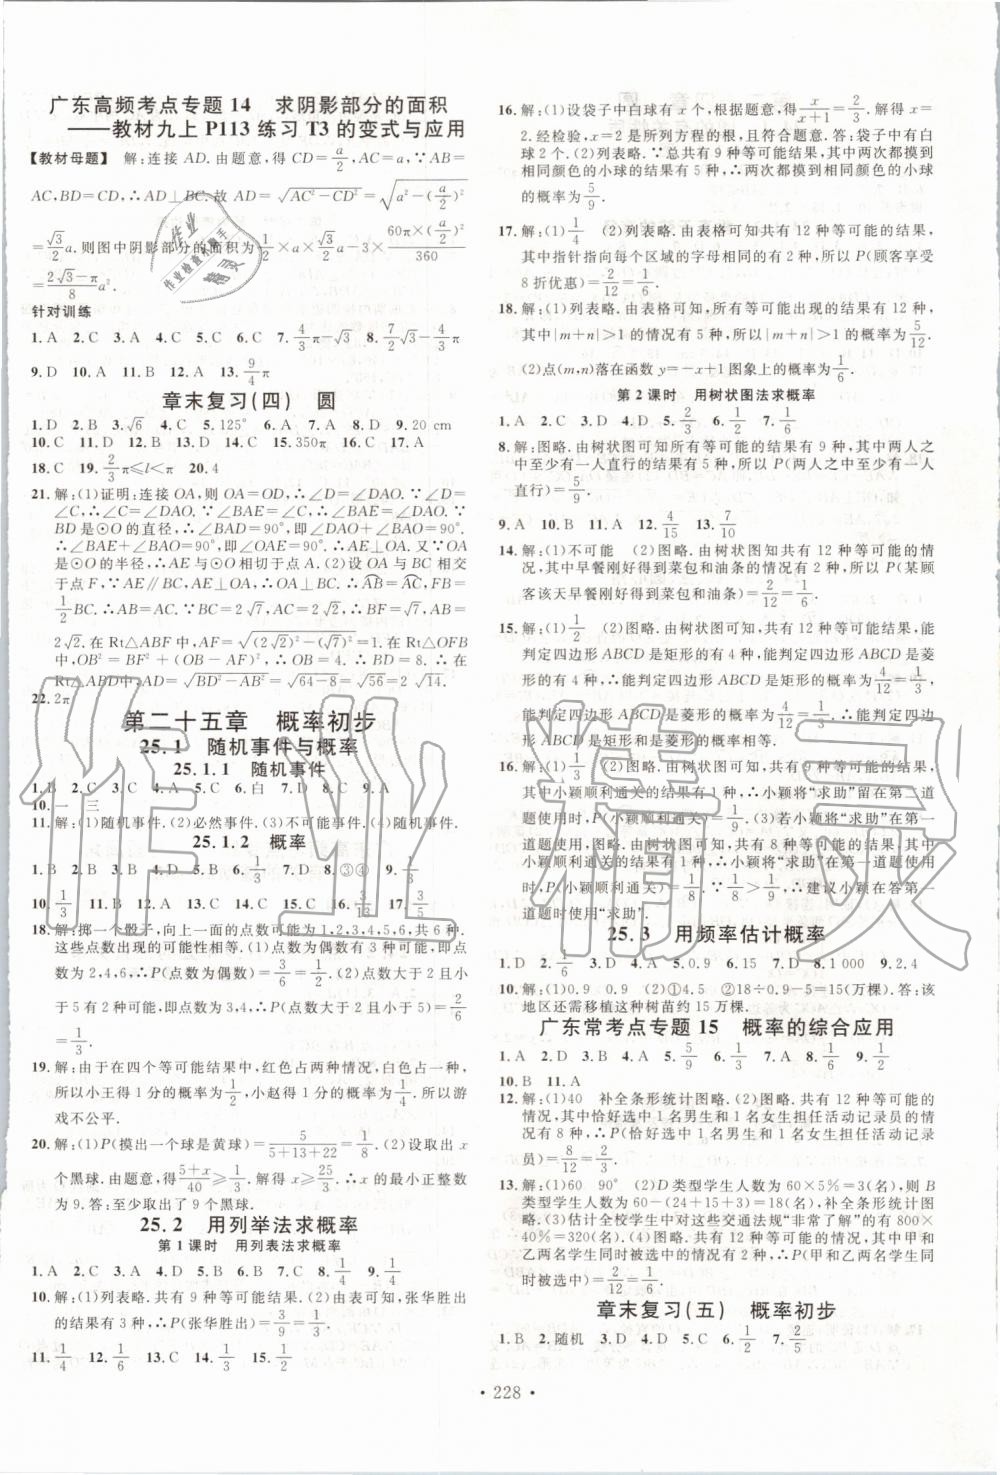 广东高频考点专题 14　求阴影部分的面积
——教材九上 P113 练习 T3 的变式与应用
【教材母题】 解:连接 AD. 由题意,得 CD=a/2,AC=a,∵AB=
AC,BD=CD,∴AD⊥BC. 故 AD=√(AC²-CD²)=√(a²-(a/2)²)
=√3/2 a. 则图中阴影部分的面积为 1/2×a×√3/2 a-3×60π×(a/2)²/360
=(2√3-π)/8 a².
针对训练
1. A　2. C　3. A　4. C　5. C　6. A　7. 4/3 π-√3　8. 7/2√3-4/3 π
9. D　10. A　11. B　12. A　13. 9/4 π
章末复习(四)　圆
1. D　2. C　3. √6　4. C　5. 125°　6. A　7. A　8. D　9. 20 cm
10. C　11. C　12. C　13. B　14. C　15. 350π　16. C　17. A
18. C　19. 2/3 π≤l<π　20. 4
21. 解:(1)证明:连接 OA,则 OA=OD,∴∠D=∠DAO. ∵∠D=
∠C,∴∠C=∠DAO. ∵∠BAE=∠C,∴∠BAE=∠DAO. ∵
BD 是⊙O 的直径,∴∠BAD=90°,即∠DAO+∠BAO=90°.
∴∠BAE+∠BAO=90°,即∠OAE=90°. ∴AE⊥OA. 又∵OA
是⊙O 的半径,∴AE 与⊙O 相切于点 A. (2)设 OA 与 BC 相交
于点 F,∵AE∥BC,AE⊥OA,∴OA⊥BC. ∴AB=AC,FB=
1/2 BC. ∴AB=AC. ∵BC=2√7,AC=2√2,∴BF=√7,AB=
2√2. 在 Rt△ABF 中,AF=√((2√2)²-(√7)²)=1. 在 Rt△OFB
中,OB²=BF²+(OB-AF)². ∴OB=4. ∴BD=8. ∴在
Rt△ABD 中,AD=√(BD²-AB²)=√(64-8)=√56=2√14.
22. 2π
第二十五章　概率初步
25.1　随机事件与概率
25.1.1　随机事件
1. B　2. C　3. C　4. C　5. C　6. 白　7. D　8. C　9. A
10. 一　三
11. 解:(1)随机事件. (2)必然事件. (3)不可能事件. (4)随机事件.
25.1.2　概率
1. B　2. B　3. C　4. D　5. D　6. B　7. D　8. ③④　9. 1/3
10. 1/3　11. B　12. B　13. A　14. C　15. 1/3　16. 3/13　17. 3/5
18. 解:掷一个骰子,向上一面的点数可能为 1,2,3,4,5,6,共 6 种.
这些点数出现的可能性相等. (1)点数为偶数有 3 种可能,即点
数为 2,4,6,∴P(点数为偶数)=3/6=1/2. (2)点数大于 2 且小
于 5 有 2 种可能,即点数为 3,4,∴P(点数大于 2 且小于 5)=2/6=
1/3.
19. 解:由于在四个等可能结果中,红色占两种情况,蓝色占两种情况,
所以小王得 1 分的概率为 1/2,小赵得 1 分的概率为 1/2. 所以游
戏不公平.
20. 解:(1)P(摸出一个球是黄球)=5/(5+13+22)=1/8. (2)设取出 x
个黑球. 由题意,得 (5+x)/40≥1/3. 解得 x≥25/3. ∴x 的最小正整数
为 9. 答:至少取出了 9 个黑球.
25.2　用列举法求概率
第 1 课时　用列表法求概率
1. A　2. C　3. A　4. D　5. D　6. D　7. C　8. 1/4　9. 1/4
10. 解:(1)列表略. 共有 9 种等可能结果. (2)由表可知,张华胜出
的结果有 3 种,∴P(张华胜出)=3/9=1/3.
11. 1/4　12. 1/6　13. C　14. 1/3　15. 1/2
16. 解:(1)设袋子中白球有 x 个,根据题意,得 x/(x+1)=2/3. 解得 x=
2. 经检验,x=2 是所列方程的根,且符合题意. 答:袋子中有白
球 2 个. (2)列表略. ∵总共有 9 种等可能结果,其中两次都摸到
相同颜色的小球的结果有 5 种,∴P(两次都摸到相同颜色的小球)
的概率为 5/9.
17. 解:(1)1/4　(2)列表略. 由表格可知共有 12 种等可能的结果,
其中指针指向每个区域的字母相同的有 2 种,所以 P(顾客享受
8 折优惠)=2/12=1/6.
18. 解:(1)列表略. 由表格可知,所有等可能出现的结果有 12 种,
其中|m+n|>1 的情况有 5 种,所以|m+n|>1 的概率为 5/12.
(2)点(m,n)落在函数 y=-x+1 图象上的概率为 1/6.
第 2 课时　用树状图法求概率
1. A　2. C　3. C　4. D　5. 2/3　6. 1/2　7. 2/3
8. 解:图略. 由树状图可知所有等可能的结果有 9 种,其中两人之
中至少有一人直行的结果有 5 种,所以 P(两人之中至少有一人
直行)=5/9.
9. A　10. B　11. A　12. 4/15　13. 7/10
14. 解:(1)不可能　(2)图略. 由树状图知共有 12 种等可能的情
况,其中早餐刚好得到菜包和油条的有 2 种情况,所以 P(某顾
客该天早餐刚好得到菜包和油条)=2/12=1/6.
15. 解:(1)1/2　(2)图略. 由树状图可知,共有 12 种等可能情况,能
判定四边形 ABCD 是菱形的有 4 种情况,能判定四边形 ABCD
是矩形的有 4 种情况,∴能判定四边形 ABCD 是矩形的概率为 4/12=1/3,
能判定四边形 ABCD 是菱形的概率为 4/12=1/3. ∴能判定四边形
ABCD 是矩形和是菱形的概率相等.
16. 解:(1)1/3　(2)图略. ∵共有 9 种等可能的结果,
小颖顺利通关的只有 1 种情况,∴小颖将“求助”留在第二道
题使用时,P(小颖顺利通关)=1/9. (3)若小颖将“求助”在第一道
题使用时,画树状图略. ∵共有 8 种等可能的结果,其
中小颖顺利通关的只有 1 种情况,∴小颖将“求助”在第一道题使用
时,P(小颖顺利通关)=1/8. ∵1/8>1/9,∴建议小颖在答第一
道题时使用“求助”.
25.3　用频率估计概率
1. D　2. 1/6　3. B　4. A　5. 0.9　6. 15　7. D　8. 1 000　9. 2.4
10. 解:(1)0.9　0.9　(2)①4.5　②18÷0.9-5=15(万棵). 答:该
地区还需移植这种树苗约 15 万棵.
广东常考点专题 15　概率的综合应用
1. B　2. D　3. D　4. A　5. 5/9　6. 1/3　7. A　8. 1/3　9. 1/2
10. B　11. A
12. 解:(1)40　补全条形统计图略. (2)图略. 共有 12 种等可能的
情况,其中恰好选中 1 名男生和 1 名女生担任活动记录员的有
8 种,∴P(恰好选中 1 名男生和 1 名女生担任活动记录
员)=8/12=2/3.
13. 解:(1)60　90°　(2)D 类型学生人数为 60×5%=3(名),则 B
类型学生人数为 60-(24+15+3)=18(名),补全条形统计图
略. (3)估计全校学生中对这些交通法规“非常了解”的有 800×
40%=320(名). (4)图略. 共有 12 种等可能的情况,其中甲和
乙两名学生同时被选中的情况有 2 种,∴P(甲和乙两名学生同
时被选中)=2/12=1/6.
章末复习(五)　概率初步
1. B　2. 随机　3. D　4. D　5. C　6. 1/2　7. 2/5
· 228 ·